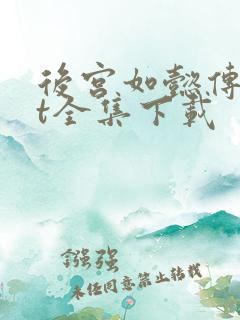 後宮如懿傳
t全集下載
鏹強
未经同意禁止转载